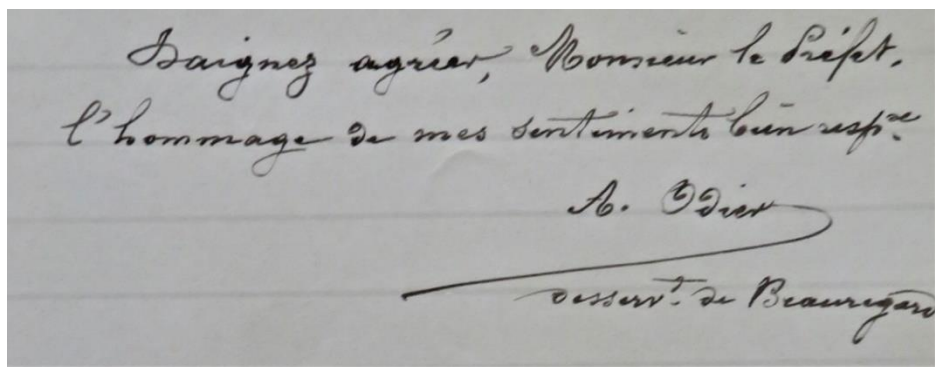 Daignez agréer, Monsieur le Préfet,
l'hommage de mes sentiments bien resp.re
A. Odier
desserv.t de Beauregard